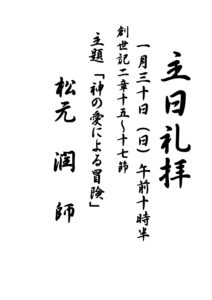 主日礼拝
一月三十日（日）午前十時半
創世記二章十五～十七節
主題「神の愛による冒険」
松元　潤　師